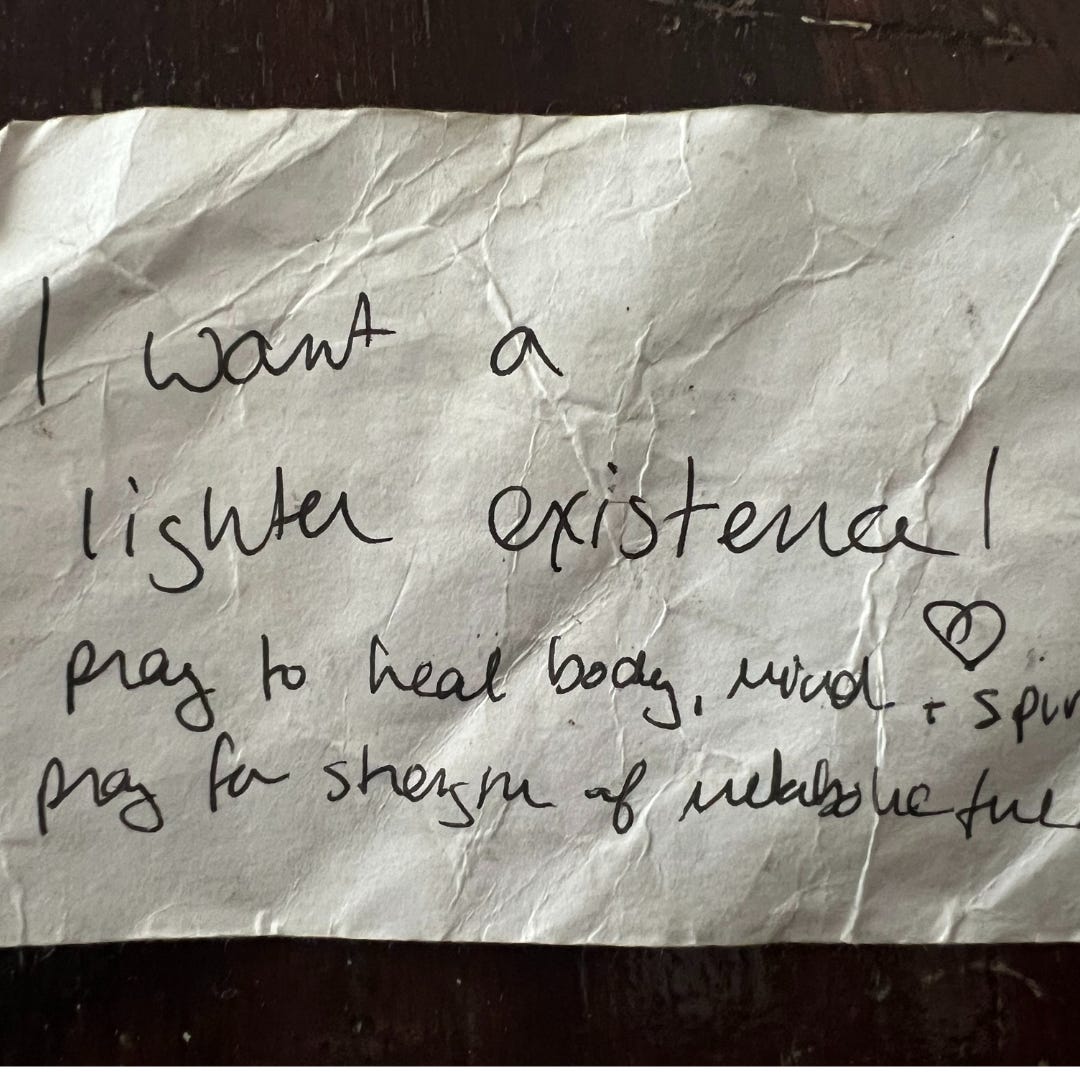 I want a
lighter existence!
pray to heal body, mind + spir
pray for strength of metabolic